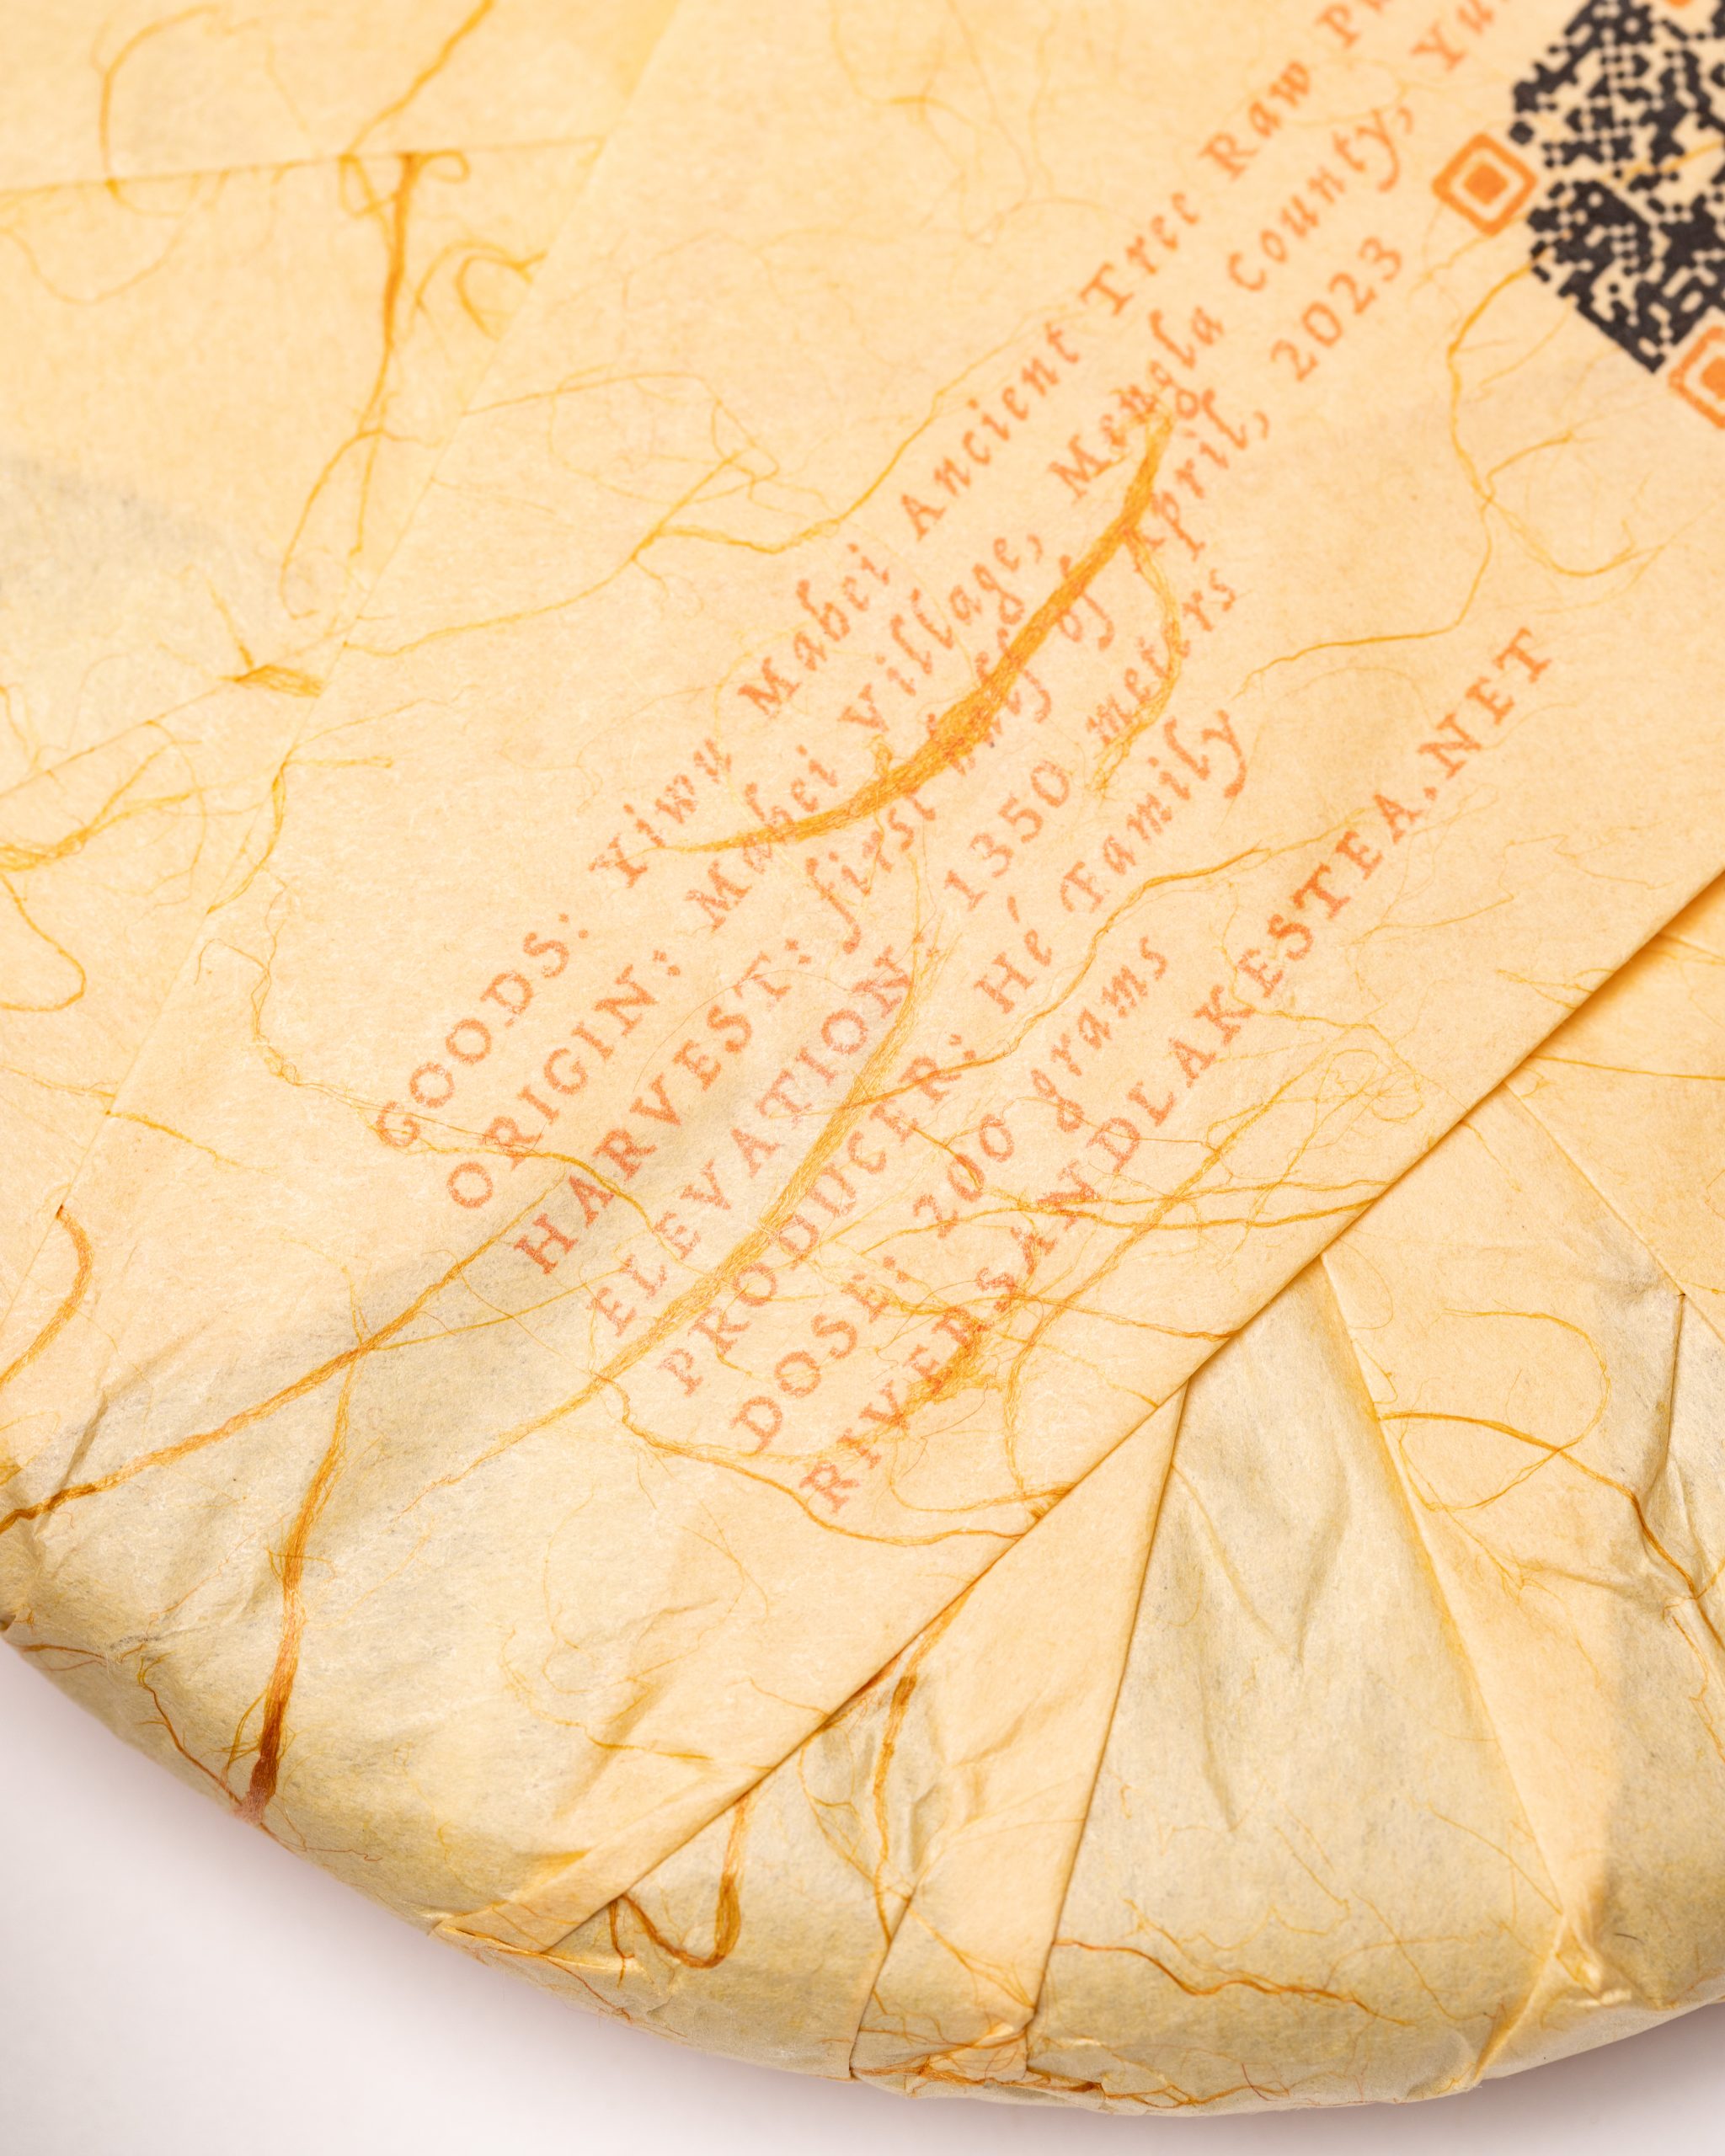 GOODS: Yiwu Mabei Ancient Tree Raw
ORIGIN: Mabei Village, Mengla County,
HARVEST: first half of April, 2023
ELEVATION: 1350 meters
PRODUCER: Hé Family
DOSE: 200 grams
RIVERSANDLAKESTEA.NET